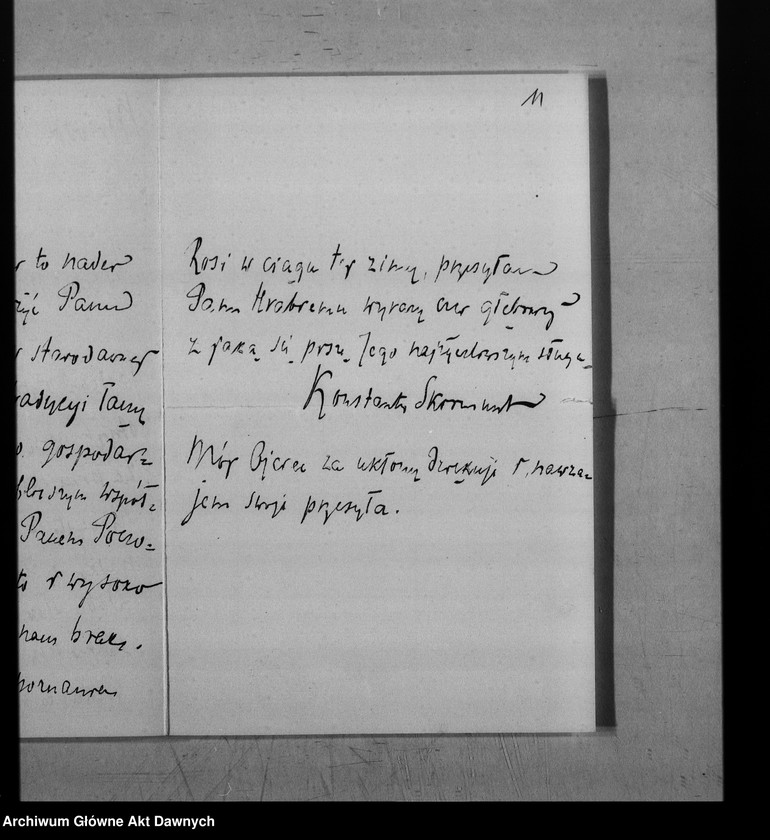 11
to nader
Panu
starodawnej
tradycyi łączy
gospodar=
bliższym współ=
Panem Poczo=
to i wysoko
nam brak.
poznaniem
Rosi w ciągu tej zimy, przesyłam
Panu Hrabiemu wyrazy czci głębokiej
z jaką się piszę Jego najżyczliwszym sługą.
Konstanty Skirmunt
Mój Ojciec za ukłony dziękuje i nawza=
jem swoje przesyła.
Archiwum Główne Akt Dawnych